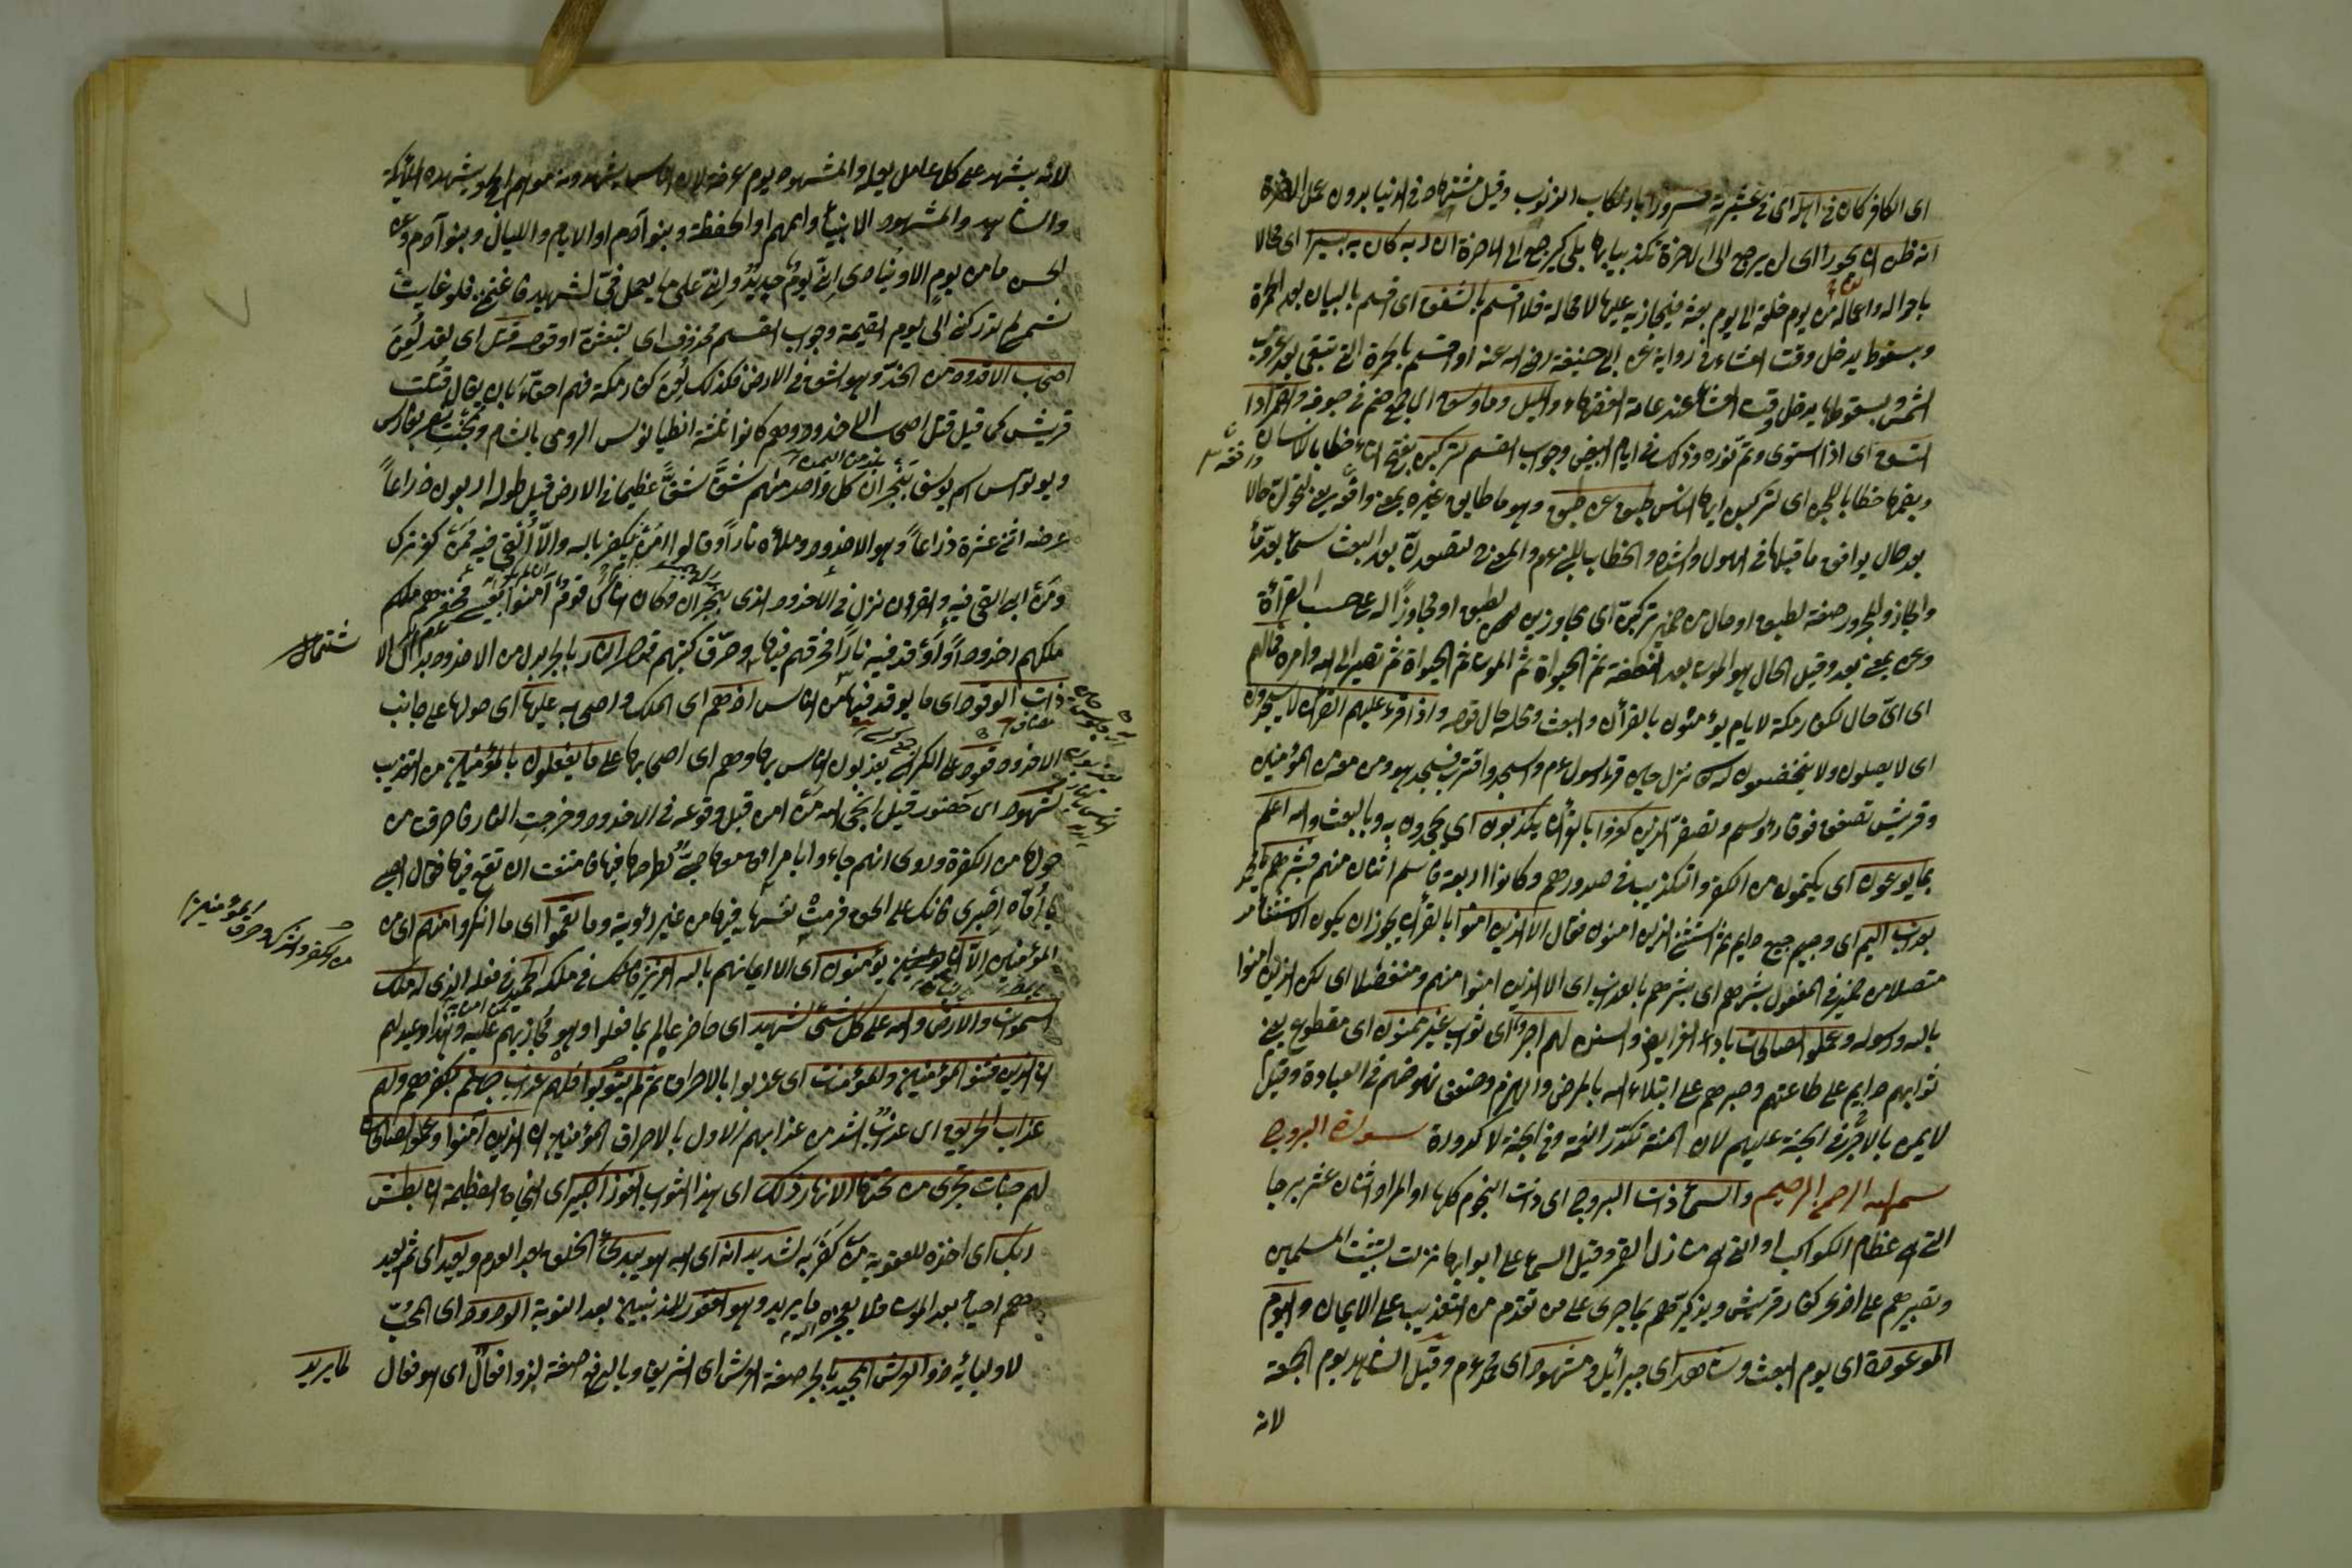 اى الكافر كان فى اهله اى فى عشيرته مسرورا بارتكاب الذنوب وقيل مشتهاه فى الدنيا بدون عمل الآخرة
انه ظن ان لن يحور اى لن يرجع الى الآخرة تكذيبا بها بلى يرجع الى الآخرة ان ربه كان به بصيرا اى عالما
باحواله واعماله من يوم خلقه الى يوم بعثه فيجازيه عليها لا محالة فلا اقسم بالشفق اى اقسم بالبياض بعد الحمرة
وبسقوطه يدخل وقت العشاء فى رواية عن ابى حنيفة رضى الله عنه او اقسم بالحمرة التى تبقى بعد غروب
الشمس وبسقوطها يدخل وقت العشاء عند عامة الفقهاء والليل وما وسق اى ما جمع وضم فى جوفه والقمر اذا
اتسق اى اذا استوى وتم نوره وذلك فى ايام البيض وجواب القسم لتركبن بفتح الباء خطابا للانسان
وبضمها خطابا للجمع اى لتركبن ايها الناس طبقا عن طبق وهو ما طابق غيره يعنى وافقه يعنى لتحولن حالا
بعد حال يوافق ما قبلها فى الهول والشدة والخطاب للنبى عم والمعنى لتصعدن بعد البعث سماء بعد سماء
والجار والمجرور صفة لطبق او حال من ضمير تركبن اى مجاوزين لطبق او مجاوزا له على حسب القرأة
وعن بمعنى بعد وقيل الحال هو الموت بعد النطفة ثم الحيوة ثم الموت ثم الحيوة ثم تصير الى الله وامره فما لهم
اى اى حال لكفار مكة لا يؤمنون بالقرأن والبعث ومحله حال قوله واذا قرئ عليهم القرأن لا يسجدون
اى لا يصلون ولا يخضعون له نزل حين قرأ رسول الله عم واسجد واقترب فسجد هو ومن معه من المؤمنين
وقريش تصفق فوق رؤسهم وتصفر بل الذين كفروا بالقرأن يكذبون اى يجحدون به وبالبعث والله اعلم
بما يوعون اى يكتمون من الكفر والتكذيب فى صدورهم وكانوا اربعة فاسلم اثنان منهم فبشرهم يا محمد
بعذاب اليم اى وجيع دايم ثم استثنى الذين امنوا فقال الا الذين امنوا بالقرأن يجوز ان يكون الاستثناء
متصلا من ضمير فى المفعول بشرهم اى بشرهم بالعذاب اى الا الذين امنوا منهم ومنقطعا اى لكن الذين امنوا
بالله ورسوله وعملوا الصالحات باداء الفرايض والسنن لهم اجر اى ثواب غير ممنون اى مقطوع يعنى
ثوابهم دايم على طاعتهم وصبرهم على ابتلاء الله بالمرض والهرم وضعف نهوضهم فى العبادة وقيل
لا يمن بالاجر فى الجنة عليهم لان المنة تكدر النعمة وفى الجنة لا كدورة سورة البروج
بسم الله الرحمن الرحيم والسماء ذات البروج اى ذات النجوم كلها او المراد اثنان عشر برجا
التى هى عظام الكواكب او التى هى منازل القمر وقيل السماء على ابوابها نزلت لتثبيت المسلمين
وتصبيرهم على اذى كفار قريش وتذكيرهم بما جرى على من تقدم من التعذيب على الايمان واليوم
الموعود اى يوم البعث وشاهد اى جبرائيل ومشهود اى محمد عم وقيل الشاهد يوم الجمعة
لانه
لانه يشهد على كل عامل بعمله والمشهود يوم عرفة لان الناس يشهدونه موسم الحج ويشهده الملائكة
والشاهد والمشهود الانبياء واممهم او الحفظة وبنو آدم او الايام والليالى وبنو آدم وعن
الحسن ما من يوم الا وينادى انى يوم جديد وانى على ما يعمل فى شهيد فاغتنم فلو غابت
شمسى لم تدركنى الى يوم القيمة وجواب القسم محذوف اى لتبعثن او قوله قتل اى لقد لعن
اصحاب الاخدود من الخد وهو الشق فى الارض فكذلك لعن كفار مكة فهم احقاء بان يقال قتلت
قريش كما قيل قتل اصحاب الاخدود وهم كانوا ثلثة انطيانوس الرومى بالشام وبختنصر بفارس
ويوسف بنجران كل واحد منهم شق شقا عظيما فى الارض قيل طوله اربعون ذراعا
عرضه اثنى عشرة ذراعا وهو الاخدود وملأه نارا وقالوا من يكفر بالله والا القى فيه فمن كفر ترك
ومن ابى القى فيه والقرأن نزل فى الاخدود الذى بنجران وكان الناس قوم آمنوا فحفر لهم ملكهم
ملكهم اخدودا واوقد فيه نارا فحرقهم فيها وحرق كتبهم قوله النار بالجر بدل من الاخدود بدل الا
شتمال
ذات الوقود اى ما يوقد فيها من الناس اذ هم اى الملك واصحابه عليها اى حولها على جانب
الاخدود قعود على الكراسى يعذبون الناس بها وهم اى اصحابها على ما يفعلون بالمؤمنين من التعذيب
شهود اى حضور قيل انجى الله من امن قبل وقوعه فى الاخدود وخرجت النار فاحرقت من
حولها من الكفرة وروى انهم جاءوا بامرأة معها صبى لطرحها فيها فامتنعت ان تقع فيها فقال الصبى
يا أماه اصبرى فانك على الحق فرمت نفسها فيها من غير رؤية وما نقموا اى ما انكروا منهم اى من
من الكفر والشرك وحرق المؤمنين
المؤمنين الا ان يؤمنوا اى الا ايمانهم بالله العزيز فى ملكه الحميد فى فعله الذى له ملك
السموات والارض والله على كل شئ شهيد اى حاضر عالم بما فعلوا وهو مجازيهم عليه وهذا وعيد لهم
ان الذين فتنوا المؤمنين والمؤمنات اى عذبوا بالاحراق ثم لم يتوبوا فلهم عذاب جهنم بكفرهم ولهم
عذاب الحريق اى عذاب اشد من عذابهم الاول بالاحراق المؤمنين ان الذين آمنوا وعملوا الصالحات
لهم جنات تجرى من تحتها الانهار ذلك اى هذا الثواب الفوز الكبير اى النجاة العظيمة ان بطش
ربك اى اخذه للعقوبة من كفر به لشديد انه اى الله هو يبدئ الخلق بعد العدم ويعيد اى ثم يعيد
هم احياء بعد الموت فلا يعجزه ما يريد وهو الغفور للمذنبين بعد التوبة الودود اى المحب
لاوليائه ذو العرش المجيد بالجر صفة العرش اى الشريف وبالرفع صفة لذو فعال اى هو فعال
لما يريد